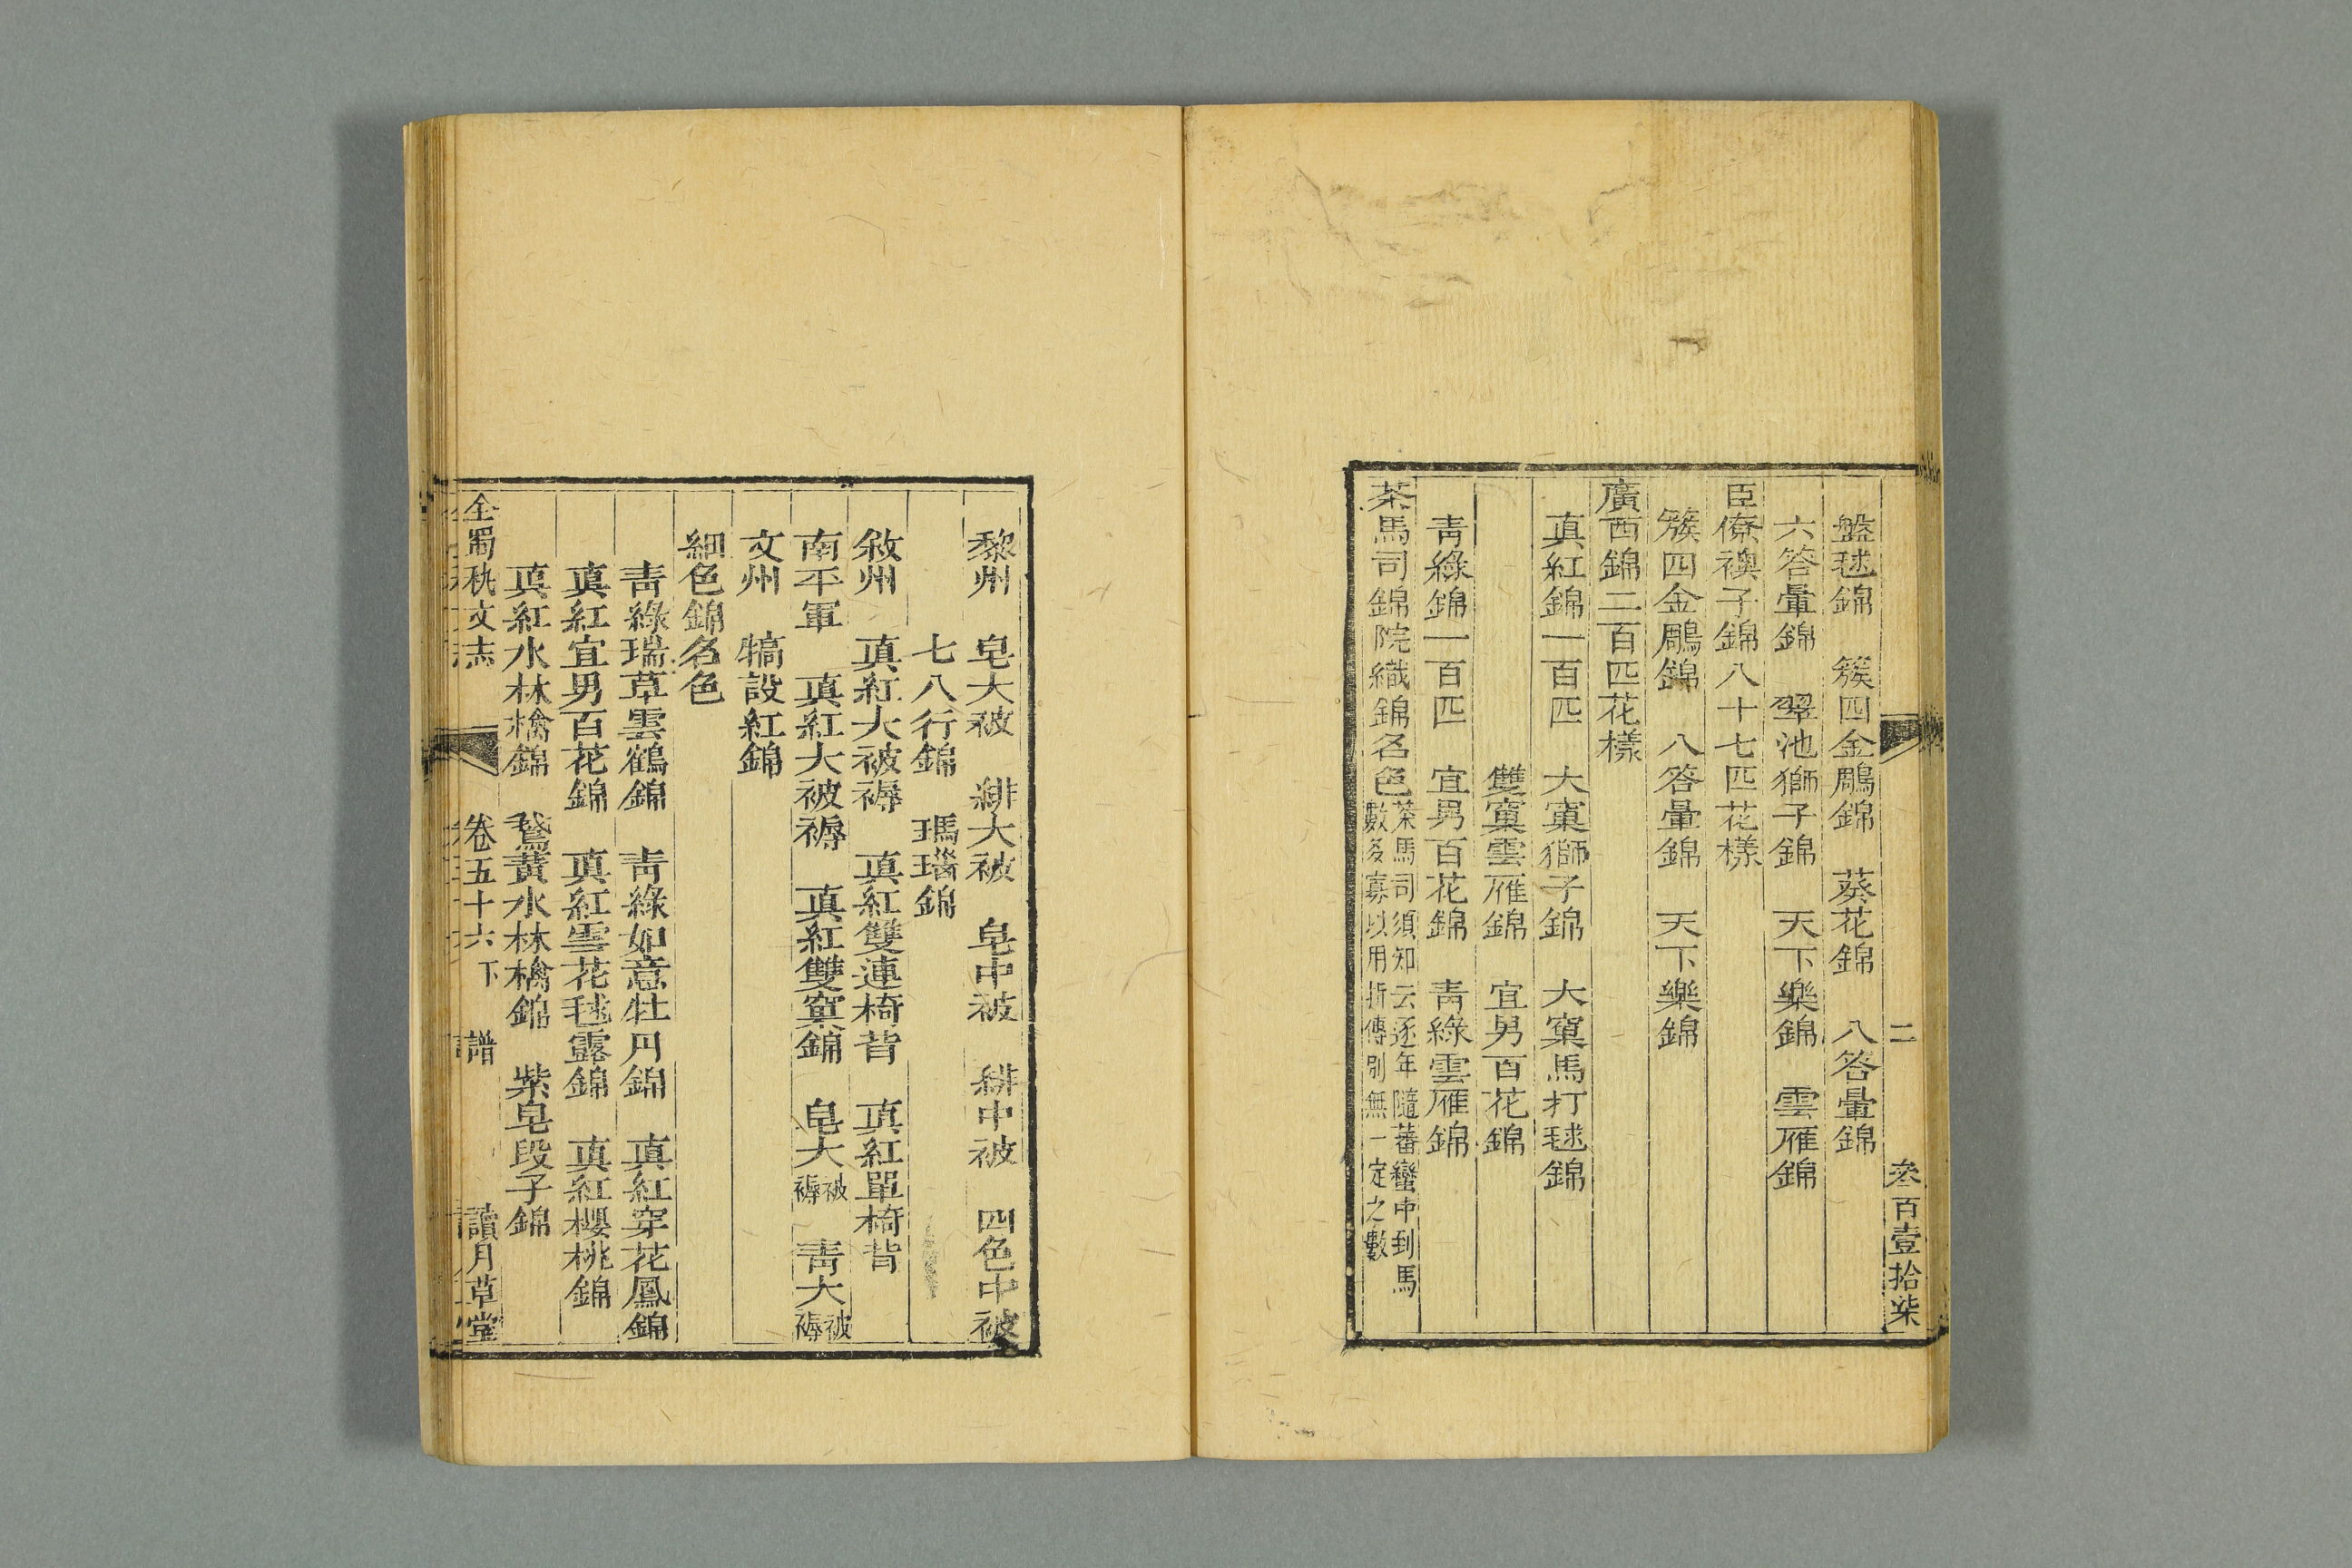 二　叁百壹拾柒
盤毬錦　簇四金鵰錦　葵花錦　八答暈錦
六答暈錦　翠池獅子錦　天下樂錦　雲雁錦
臣僚襖子錦八十七匹花樣
簇四金鵰錦　八答暈錦　天下樂錦
廣西錦二百匹花樣
真紅錦一百匹　大窠獅子錦　大窠馬打毬錦
雙窠雲雁錦　宜男百花錦
青綠錦一百匹　宜男百花錦　青綠雲雁錦
茶馬司錦院織錦名色
茶馬司須知云逐年隨蕃蠻中到馬
數多寡以用折傳別無一定之數
黎州　皂大被　緋大被　皂中被　緋中被　四色中被
七八行錦　瑪瑙錦
敘州　真紅大被褥　真紅雙連椅背　真紅單椅背
南平軍　真紅大被褥　真紅雙窠錦　皂大被褥　青大被褥
文州　犒設紅錦
細色錦名色
青綠瑞草雲鶴錦　青綠如意牡丹錦　真紅穿花鳳錦
真紅宜男百花錦　真紅雪花毬露錦　真紅櫻桃錦
真紅水林檎錦　鵞黃水林檎錦　紫皂段子錦
全蜀秇文志　卷五十六下　譜　讀月草堂